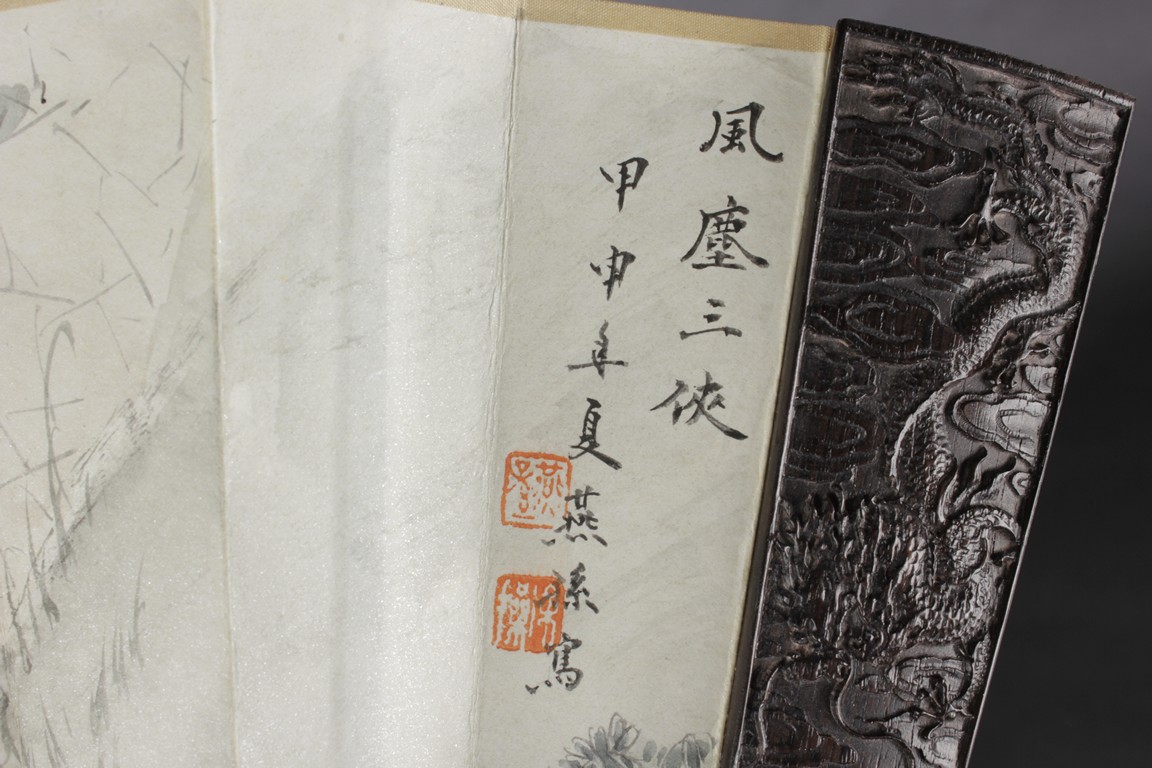 風塵三俠
甲申年夏燕孫寫